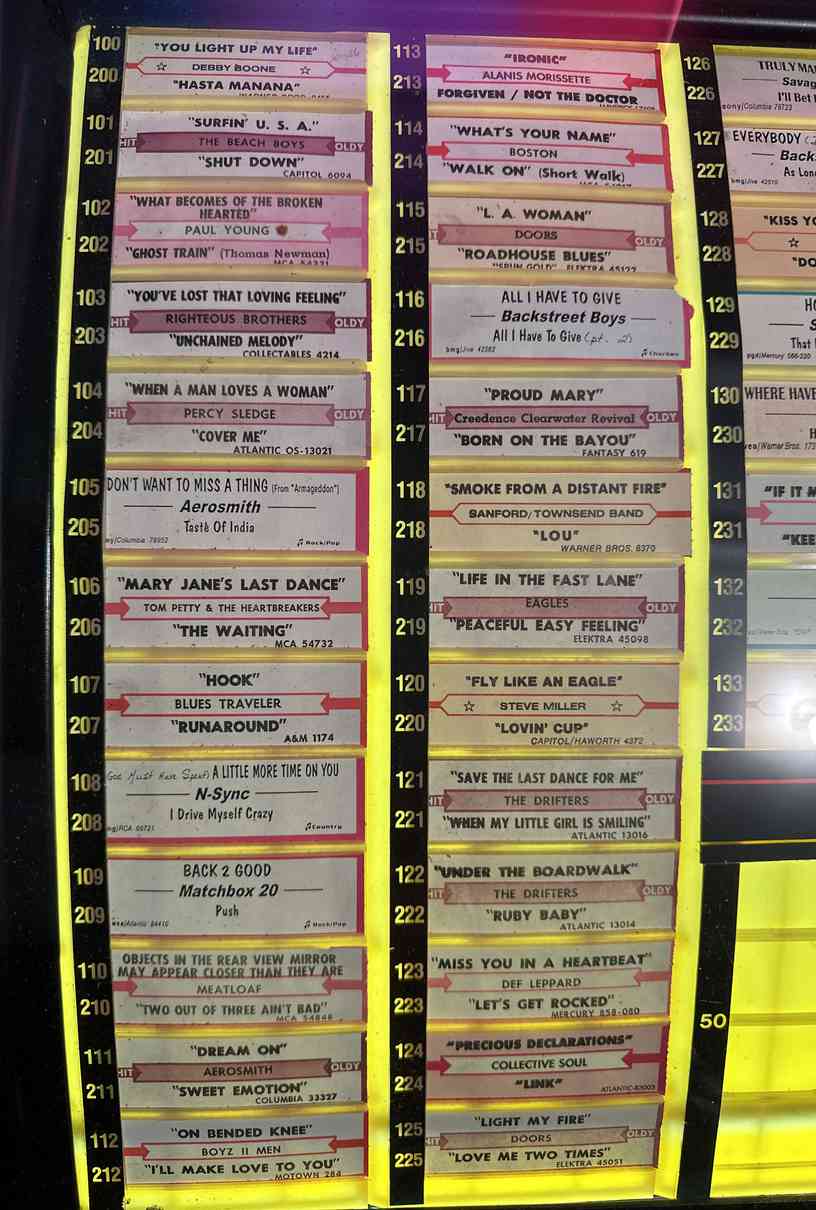 100
"YOU LIGHT UP MY LIFE"
DEBBY BOONE
200
"HASTA MANANA"
101
"SURFIN' U. S. A."
HIT THE BEACH BOYS OLDY
201
"SHUT DOWN"
CAPITOL 6094
102
"WHAT BECOMES OF THE BROKEN
HEARTED"
PAUL YOUNG
202
"GHOST TRAIN" (Thomas Newman)
MCA 54331
103
"YOU'VE LOST THAT LOVING FEELING"
HIT RIGHTEOUS BROTHERS OLDY
203
"UNCHAINED MELODY"
COLLECTABLES 4214
104
"WHEN A MAN LOVES A WOMAN"
HIT PERCY SLEDGE OLDY
204
"COVER ME"
ATLANTIC OS-13021
105
DON'T WANT TO MISS A THING (From "Armageddon")
Aerosmith
205
Taste Of India
Columbia 78952
Rock/Pop
106
"MARY JANE'S LAST DANCE"
TOM PETTY & THE HEARTBREAKERS
206
"THE WAITING"
MCA 54732
107
"HOOK"
BLUES TRAVELER
207
"RUNAROUND"
A&M 1174
108
God Must Have Spent A LITTLE MORE TIME ON YOU
N-Sync
208
I Drive Myself Crazy
Country
109
BACK 2 GOOD
Matchbox 20
209
Push
Atlantic 84410
Rock/Pop
110
OBJECTS IN THE REAR VIEW MIRROR
MAY APPEAR CLOSER THAN THEY ARE
MEATLOAF
210
"TWO OUT OF THREE AIN'T BAD"
MCA 54848
111
"DREAM ON"
HIT AEROSMITH OLDY
211
"SWEET EMOTION"
COLUMBIA 33327
112
"ON BENDED KNEE"
BOYZ II MEN
212
"I'LL MAKE LOVE TO YOU"
MOTOWN 284
113
"IRONIC"
ALANIS MORISSETTE
213
FORGIVEN / NOT THE DOCTOR
114
"WHAT'S YOUR NAME"
BOSTON
214
"WALK ON" (Short Walk)
115
"L. A. WOMAN"
HIT DOORS OLDY
215
"ROADHOUSE BLUES"
"SPUN GOLD" ELEKTRA 45122
116
ALL I HAVE TO GIVE
Backstreet Boys
216
All I Have To Give (pt. 2)
bmg/Jive 42562
117
"PROUD MARY"
HIT Creedence Clearwater Revival OLDY
217
"BORN ON THE BAYOU"
FANTASY 619
118
"SMOKE FROM A DISTANT FIRE"
SANFORD/TOWNSEND BAND
218
"LOU"
WARNER BROS. 8370
119
"LIFE IN THE FAST LANE"
HIT EAGLES OLDY
219
"PEACEFUL EASY FEELING"
ELEKTRA 45098
120
"FLY LIKE AN EAGLE"
STEVE MILLER
220
"LOVIN' CUP"
CAPITOL/HAWORTH 4372
121
"SAVE THE LAST DANCE FOR ME"
HIT THE DRIFTERS OLDY
221
"WHEN MY LITTLE GIRL IS SMILING"
ATLANTIC 13016
122
"UNDER THE BOARDWALK"
HIT THE DRIFTERS OLDY
222
"RUBY BABY"
ATLANTIC 13014
123
"MISS YOU IN A HEARTBEAT"
DEF LEPPARD
223
"LET'S GET ROCKED"
MERCURY 858-080
124
"PRECIOUS DECLARATIONS"
COLLECTIVE SOUL
224
"LINK"
125
"LIGHT MY FIRE"
HIT DOORS OLDY
225
"LOVE ME TWO TIMES"
ELEKTRA 45051
126
TRULY MA
Savag
226
I'll Bet
Columbia 78723
127
EVERYBODY
Back
227
As Lon
bmg/Jive 42510
128
"KISS YO
228
"DO
129
HO
S
229
That
pgd/Mercury 566-220
130
WHERE HAVE
230
H
131
"IF IT M
231
"KEE
132
232
133
233
50